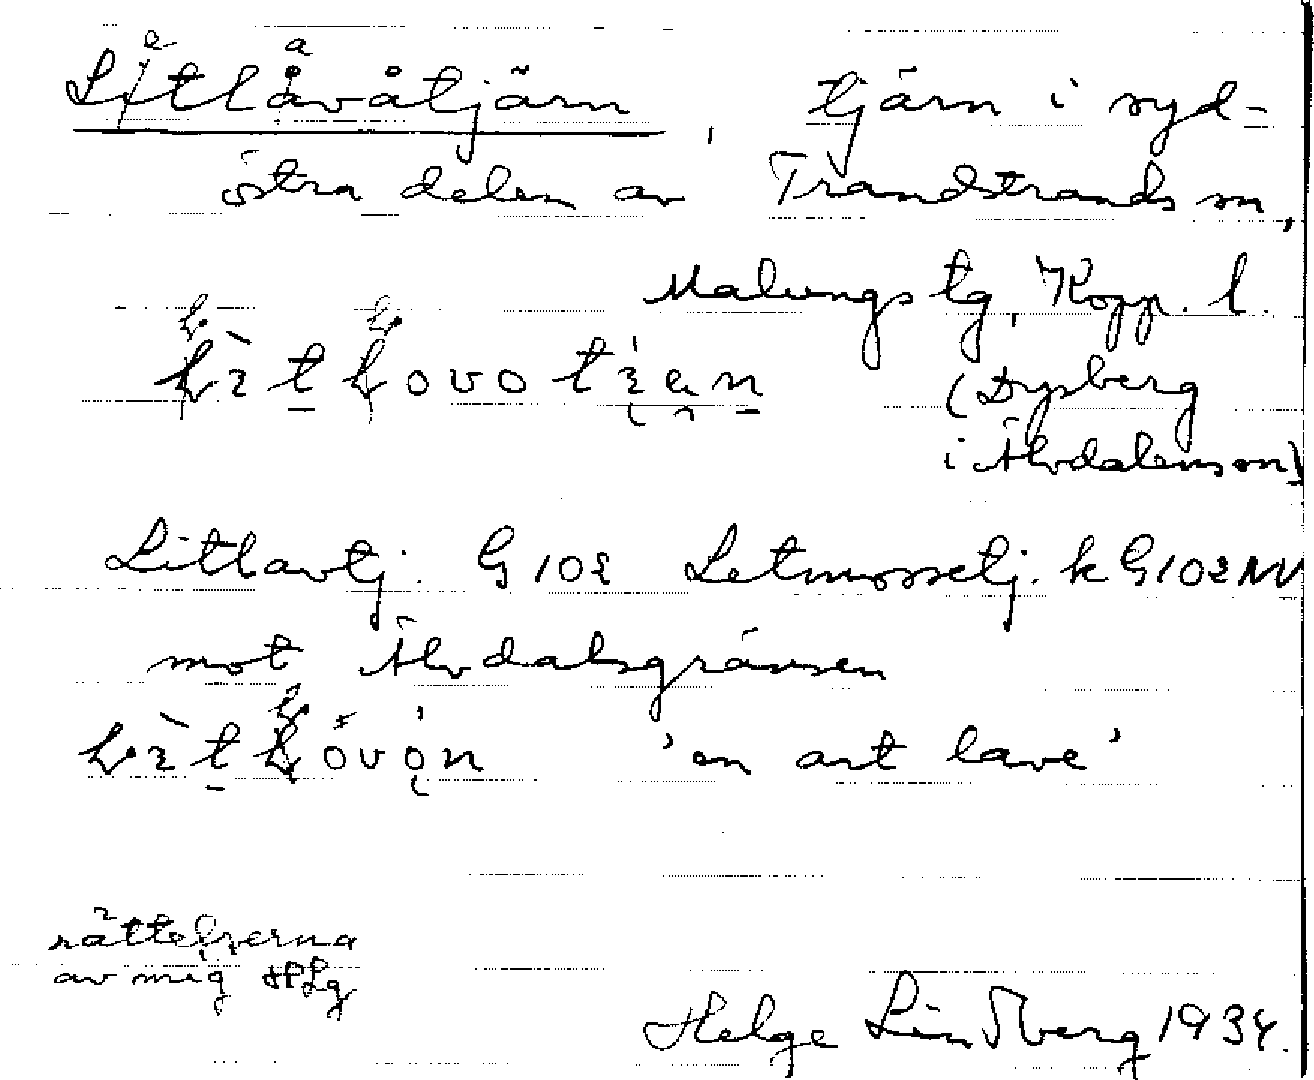 Litlåvåtjärn, tjärn i syd-
östra delen av Trandstrands sn,
Malungs tg, Kopp. l.
(Dysberg
i Älvdalens sn)
Litlavtj. G 102 Letmossetj. k G 102 NV
mot Älvdalsgränsen
'en art lave'
rättelserna
av mig HPLg
Helge Lindberg 1934.